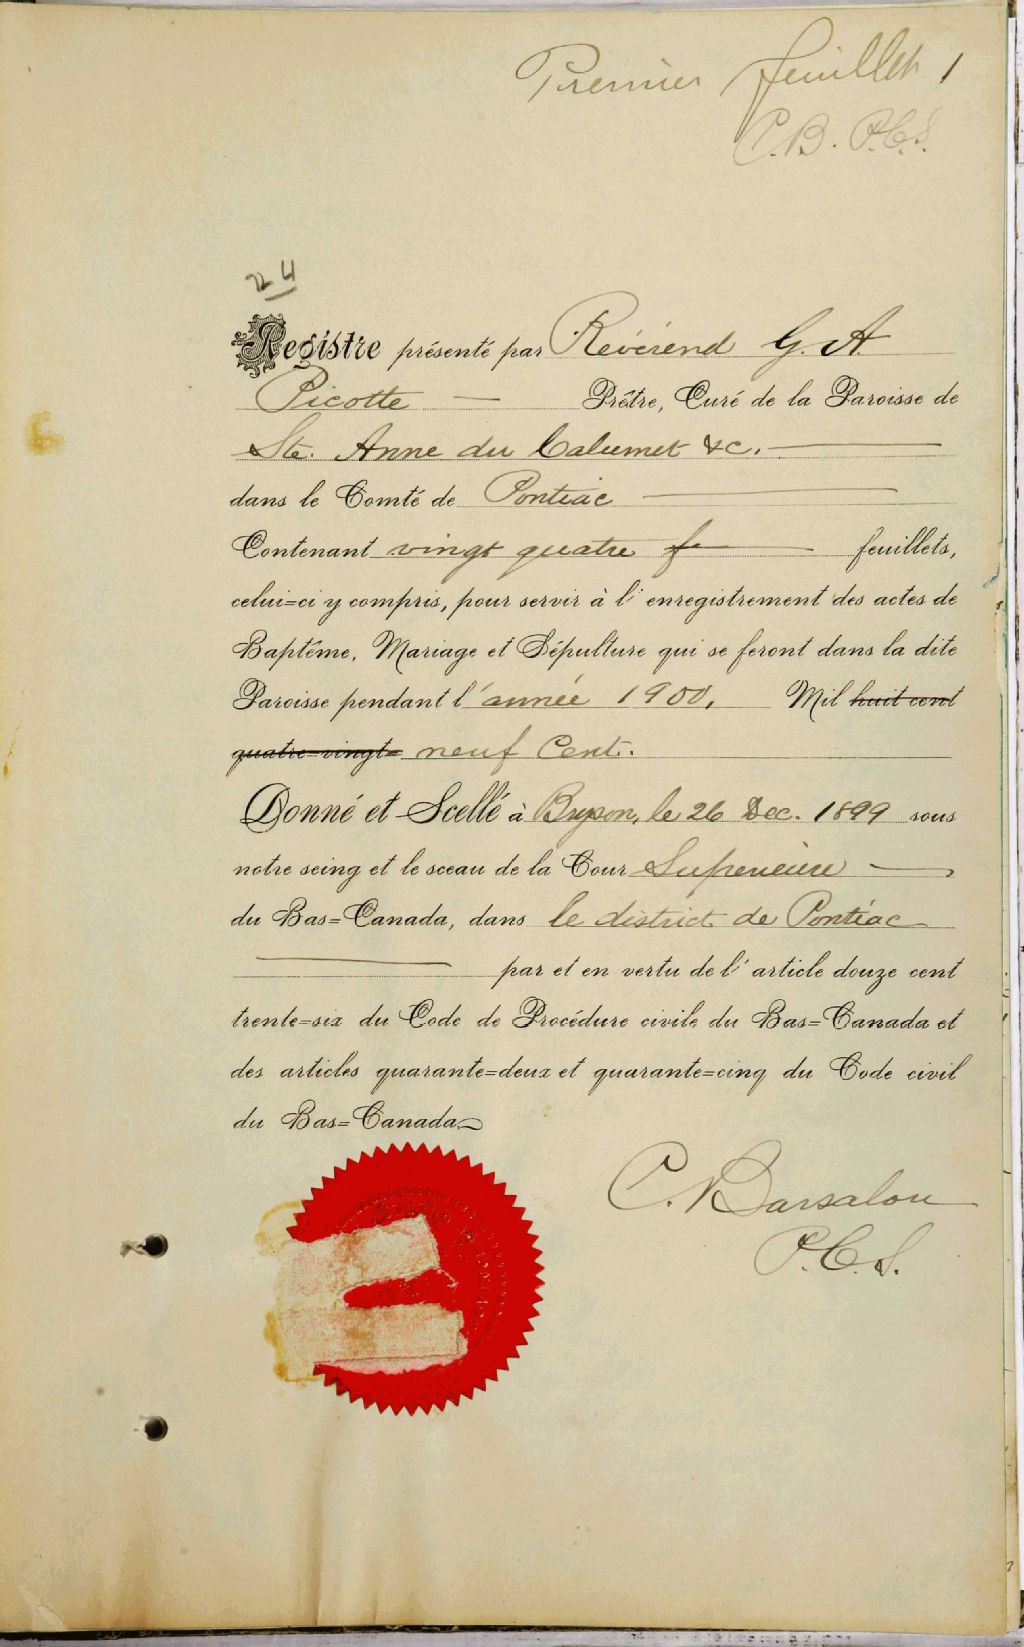 Premier feuillet 1
C. B. P.C.S.
24
Registre présenté par Révérend G. A.
Picotte — Prêtre, Curé de la Paroisse de
Ste. Anne du Calumet &c. —
dans le Comté de Pontiac —
Contenant vingt quatre f— feuillets,
celui=ci y compris, pour servir à l'enregistrement des actes de
Baptême, Mariage et Sépulture qui se feront dans la dite
Paroisse pendant l'année 1900, Mil huit cent
quatre=vingt= neuf Cent.
Donné et Scellé à Bryson, le 26 Dec. 1899 sous
notre seing et le sceau de la Cour Superieure —
du Bas=Canada, dans le district de Pontiac
— par et en vertu de l'article douze cent
trente=six du Code de Procédure civile du Bas=Canada et
des articles quarante=deux et quarante=cinq du Code civil
du Bas=Canada
C. Barsalou
P.C.S.